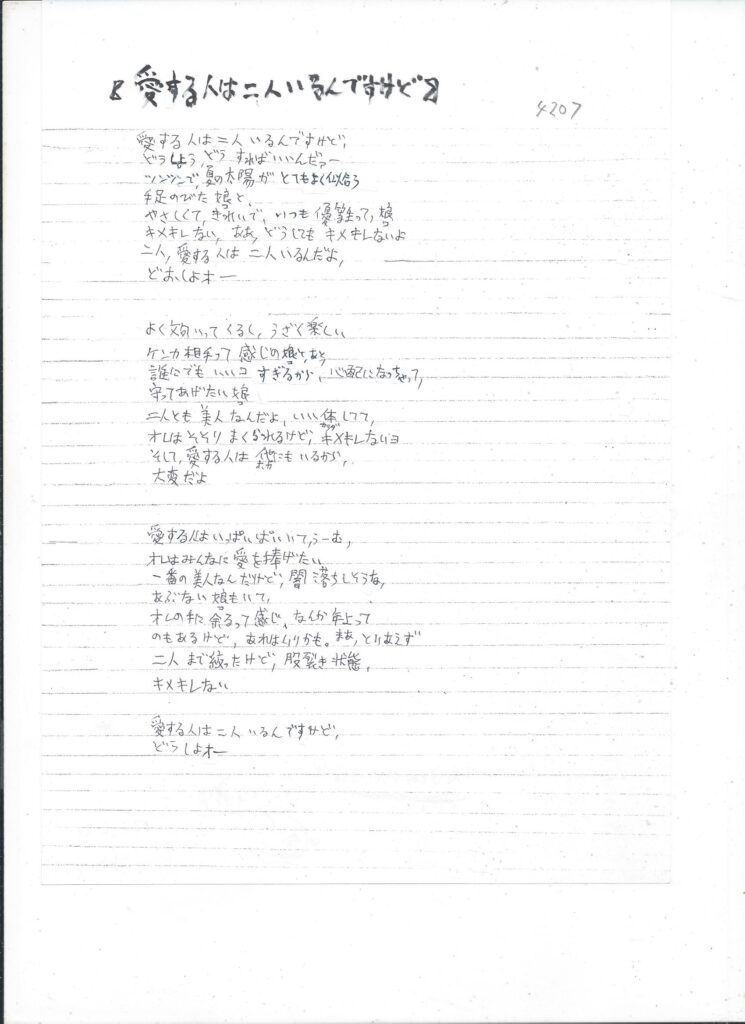 『愛する人は二人いるんですけど』
4207
愛する人は二人いるんですけど、
どうしよう、どうすればいいんだァー
ツンツンで、夏の太陽がとてもよく似合う
手足のびた娘と、
コ
やさしくて、きれいで、いつも優雅って、娘
コ
キメキレない、ああ、どうしてもキメキレないよ
二人、愛する人は二人いるんだよ、
どおしよオー
よく文句いってくるし、うざく楽しい
ケンカ相手って感じの娘と、あと、
コ
誰にでもいいコすぎるから、心配になっちゃって、
守ってあげたい娘
コ
二人とも美人なんだよ、いい体してて、
カラダ
オレはそそりまくられるけど、キメキレないヨ
そして、愛する人は他にもいるから、
ホカ
大変だよ
愛する人はいっぱいぱいいて、うーむ、
オレはみんなに愛を捧げたい
一番の美人なんだけど、闇落ちしそうな、
あぶない娘もいて、
コ
オレの手に余るって感じ、なんか年上って
のもあるけど、あれはムリかも。まあ、とりあえず
二人まで絞ったけど、股裂き状態、
キメキレない
愛する人は二人いるんですけど、
どうしよオー